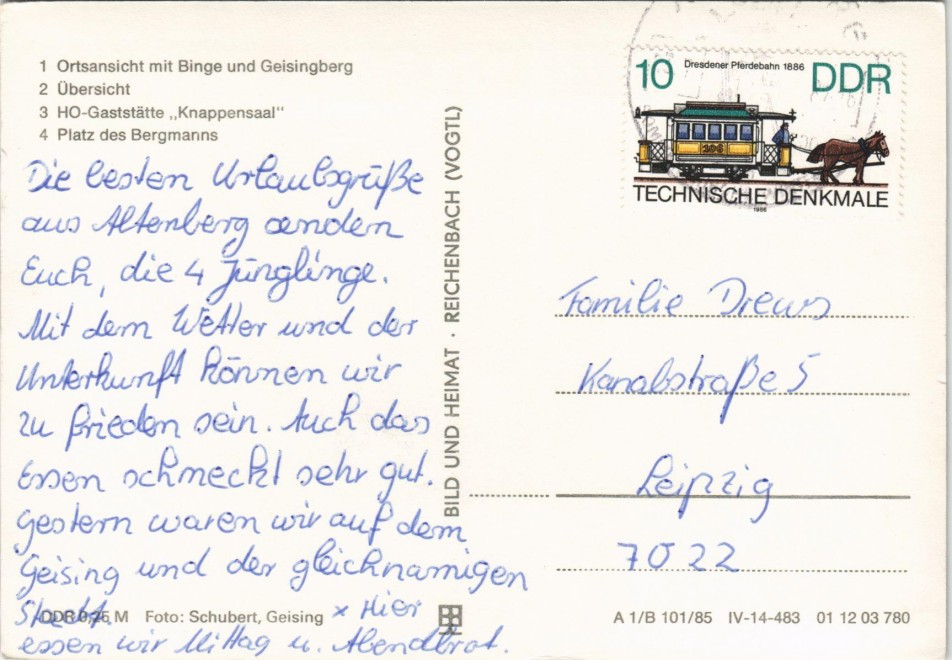 1 Ortsansicht mit Binge und Geisingberg
2 Übersicht
3 HO-Gaststätte „Knappensaal“
4 Platz des Bergmanns
Die besten Urlaubsgrüße
aus Altenberg senden
Euch, die 4 Jünglinge.
Mit dem Wetter und der
Unterkunft können wir
zu frieden sein. Auch das
Essen schmeckt sehr gut.
Gestern waren wir auf dem
Geising und der gleichnamigen
Stadt. x Hier
essen wir Mittag u. Abendbrot.
DDR 0,25 M Foto: Schubert, Geising
BILD UND HEIMAT · REICHENBACH (VOGTL)
10 Dresdener Pferdebahn 1886 DDR
106
TECHNISCHE DENKMALE
1986
Familie Drews
Kanalstraße 5
Leipzig
7022
A 1/B 101/85 IV-14-483 01 12 03 780